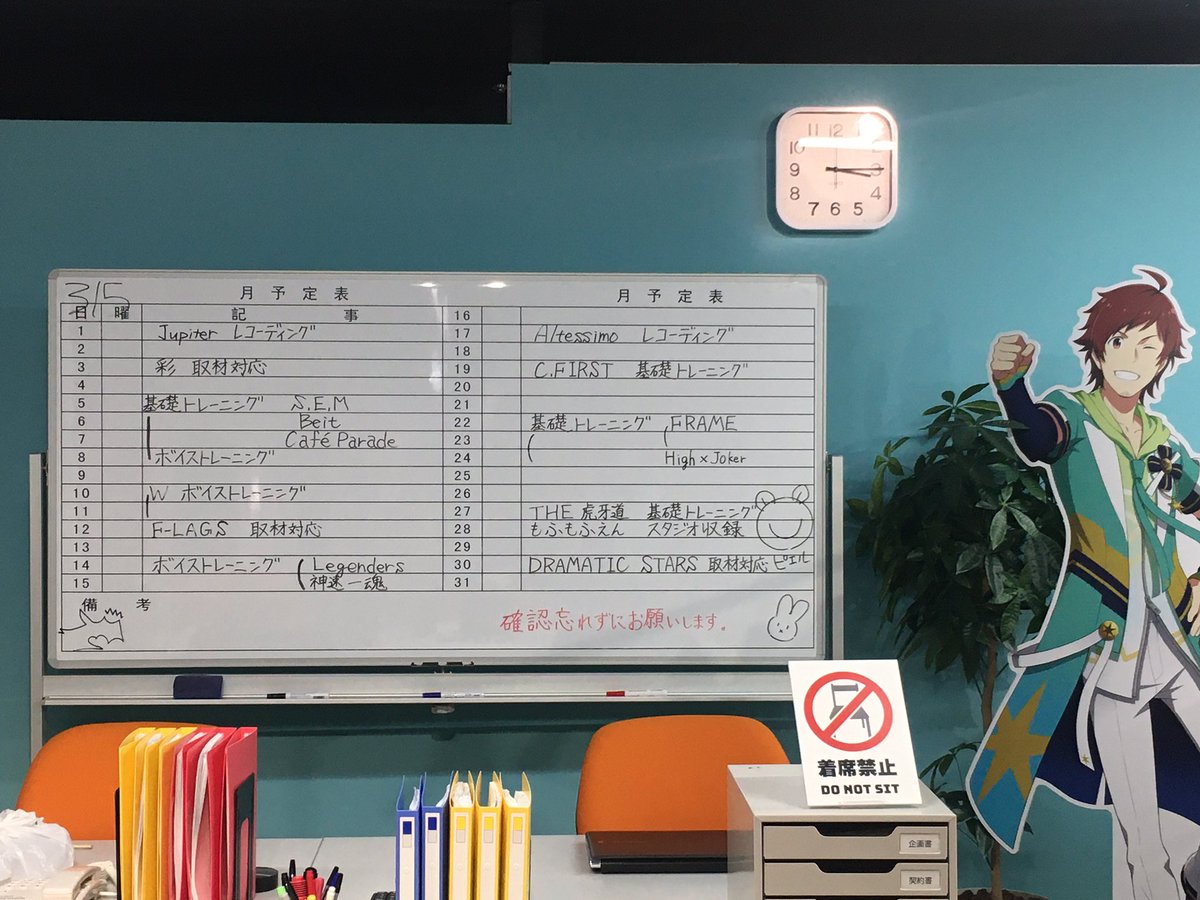 3/5
月予定表
日 曜 記事
1 Jupiter レコーディング
2
3 彩 取材対応
4
5 基礎トレーニング S.E.M
6 Beit
7 Café Parade
8 ボイストレーニング
9
10 W ボイストレーニング
11
12 F-LAGS 取材対応
13
14 ボイストレーニング Legenders
15 神速一魂
月予定表
16
17 Altessimo レコーディング
18
19 C.FIRST 基礎トレーニング
20
21
22 基礎トレーニング FRAME
23
24 High×Joker
25
26
27 THE 虎牙道 基礎トレーニング
28 もふもふえん スタジオ収録
29
30 DRAMATIC STARS 取材対応 ピエル
31
備考
確認忘れずにお願いします。
11 12
10 2
9 3
8 4
7 6 5
着席禁止
DO NOT SIT
企画書
契約書